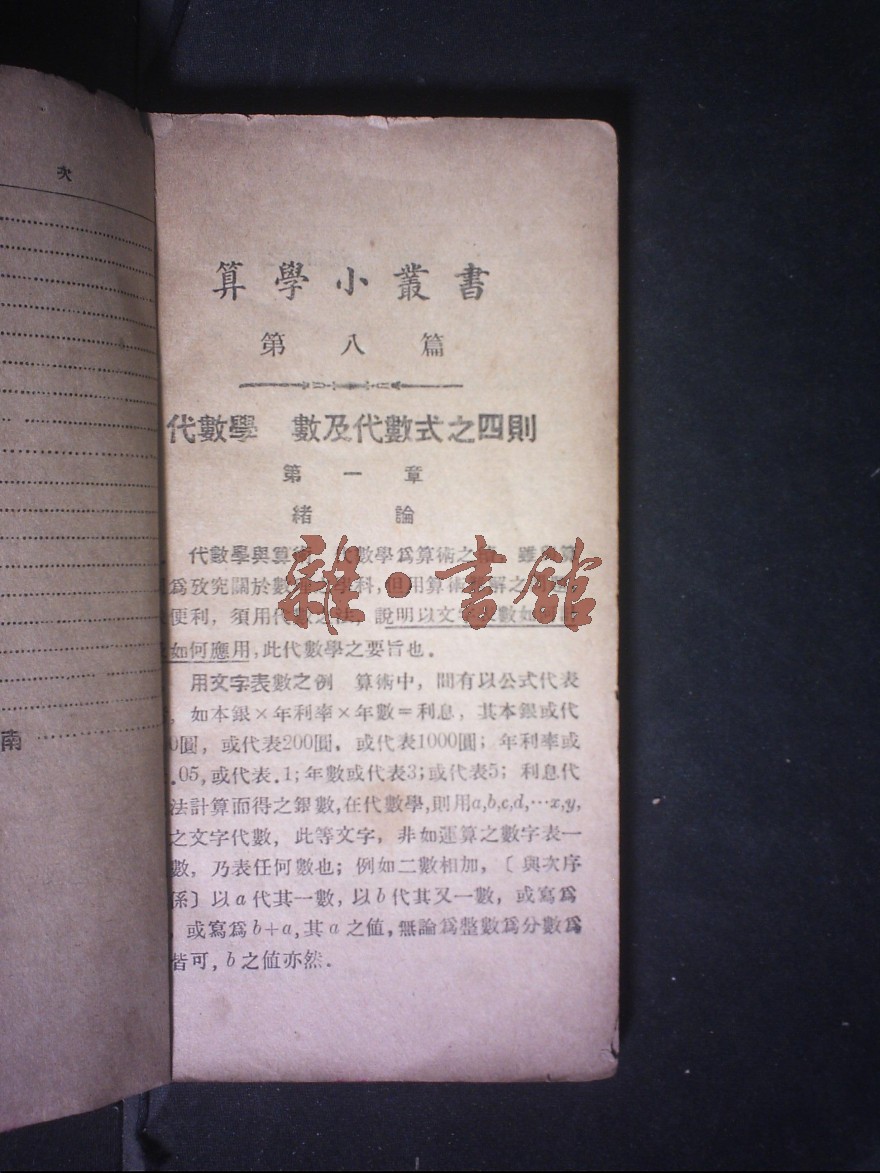 次
南
算學小叢書
第八篇
代數學　數及代數式之四則
第一章
緒論
代數學與算術　代數學爲算術之　雖　算
爲攷究關於數　學科,但用算術　解之
便利，須用代數之法，說明以文字　數如
如何應用,此代數學之要旨也．
用文字表數之例　算術中，間有以公式代表
，如本銀×年利率×年數＝利息，其本銀或代
0圓，或代表200圓，或代表1000圓；年利率或
.05,或代表.1;年數或代表3;或代表5；利息代
法計算而得之銀數,在代數學,則用a,b,c,d,…x,y,
之文字代數，此等文字，非如運算之數字表一
數，乃表任何數也；例如二數相加，〔與次序
係〕以a代其一數，以b代其又一數，或寫爲
，或寫爲b+a,其a之值,無論爲整數爲分數爲
皆可, b之值亦然．
雜·書館